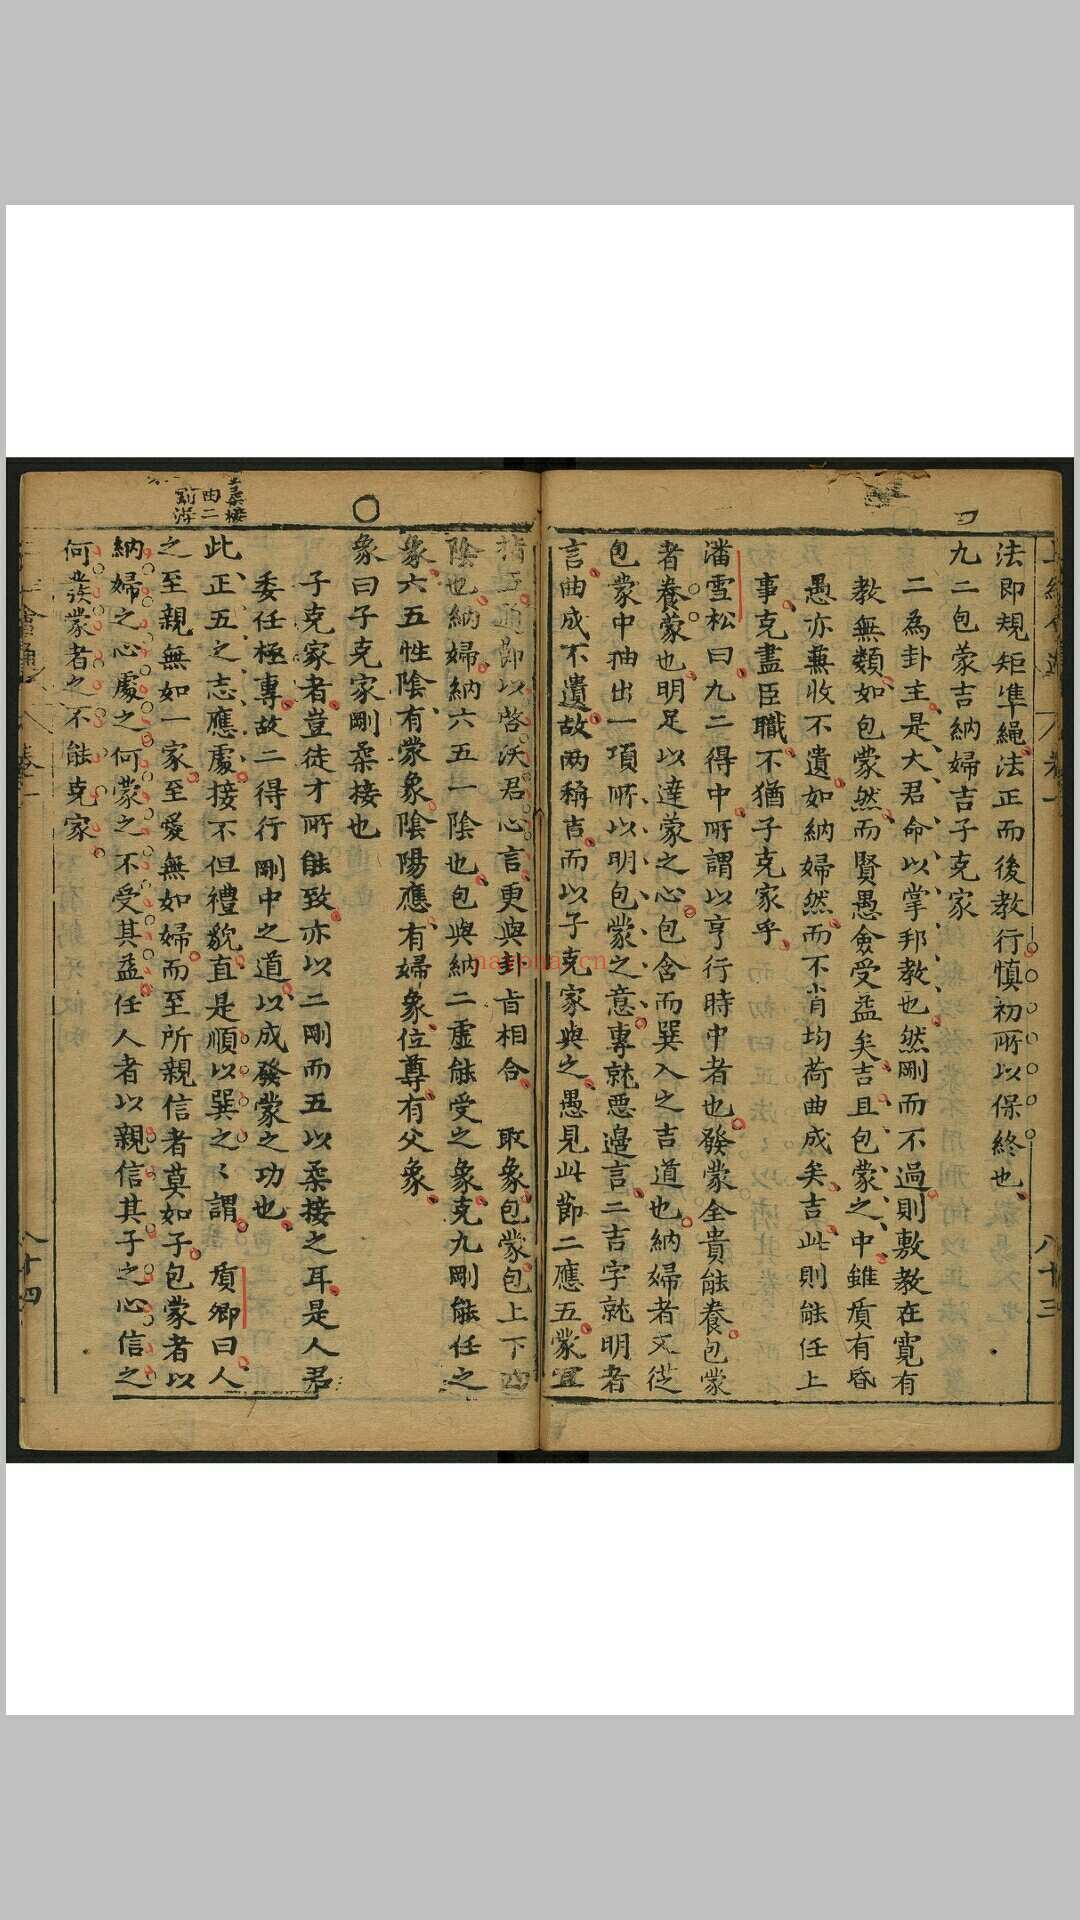 法即規矩準繩法正而後教行慎初所以保終也
九二包蒙吉納婦吉子克家
二為卦主是大君命以掌邦教也然剛而不過則敷教在寬有
教無類如包蒙然而賢愚僉受益矣吉且包蒙之中雖質有昏
愚亦兼收不遺如納婦然而不肖均荷曲成矣吉此則能任上
事克盡臣職不猶子克家乎
潘雪松曰九二得中所謂以亨行時中者也發蒙全貴能養包蒙
者養蒙也明足以達蒙之心包含而巽入之吉道也納婦者又從
包蒙中抽出一項所以明包蒙之意專就悪邉言二吉字就明者
言曲成不遺故两稱吉而以子克家與之愚見此節二應五蒙宜
指五通節以啓沃君心言更與卦旨相合 取象包蒙包上下四
陰也納婦納六五一陰也包與納二虛能受之象克九剛能任之
象六五性陰有蒙象陰陽應有婦象位尊有父象
象曰子克家剛柔接也
子克家者豈徒才所能致亦以二剛而五以柔接之耳是人君
委任極專故二得行剛中之道以成發蒙之功也
此正五之志應處接不但禮貌直是順以巽之〻謂 質卿曰人
之至親無如一家至愛無如婦而至所親信者莫如子包蒙者以
納婦之心處之何蒙之不受其益任人者以親信其子之心信之
何發蒙者之不能克家
八十三
八十四
nayona.cn